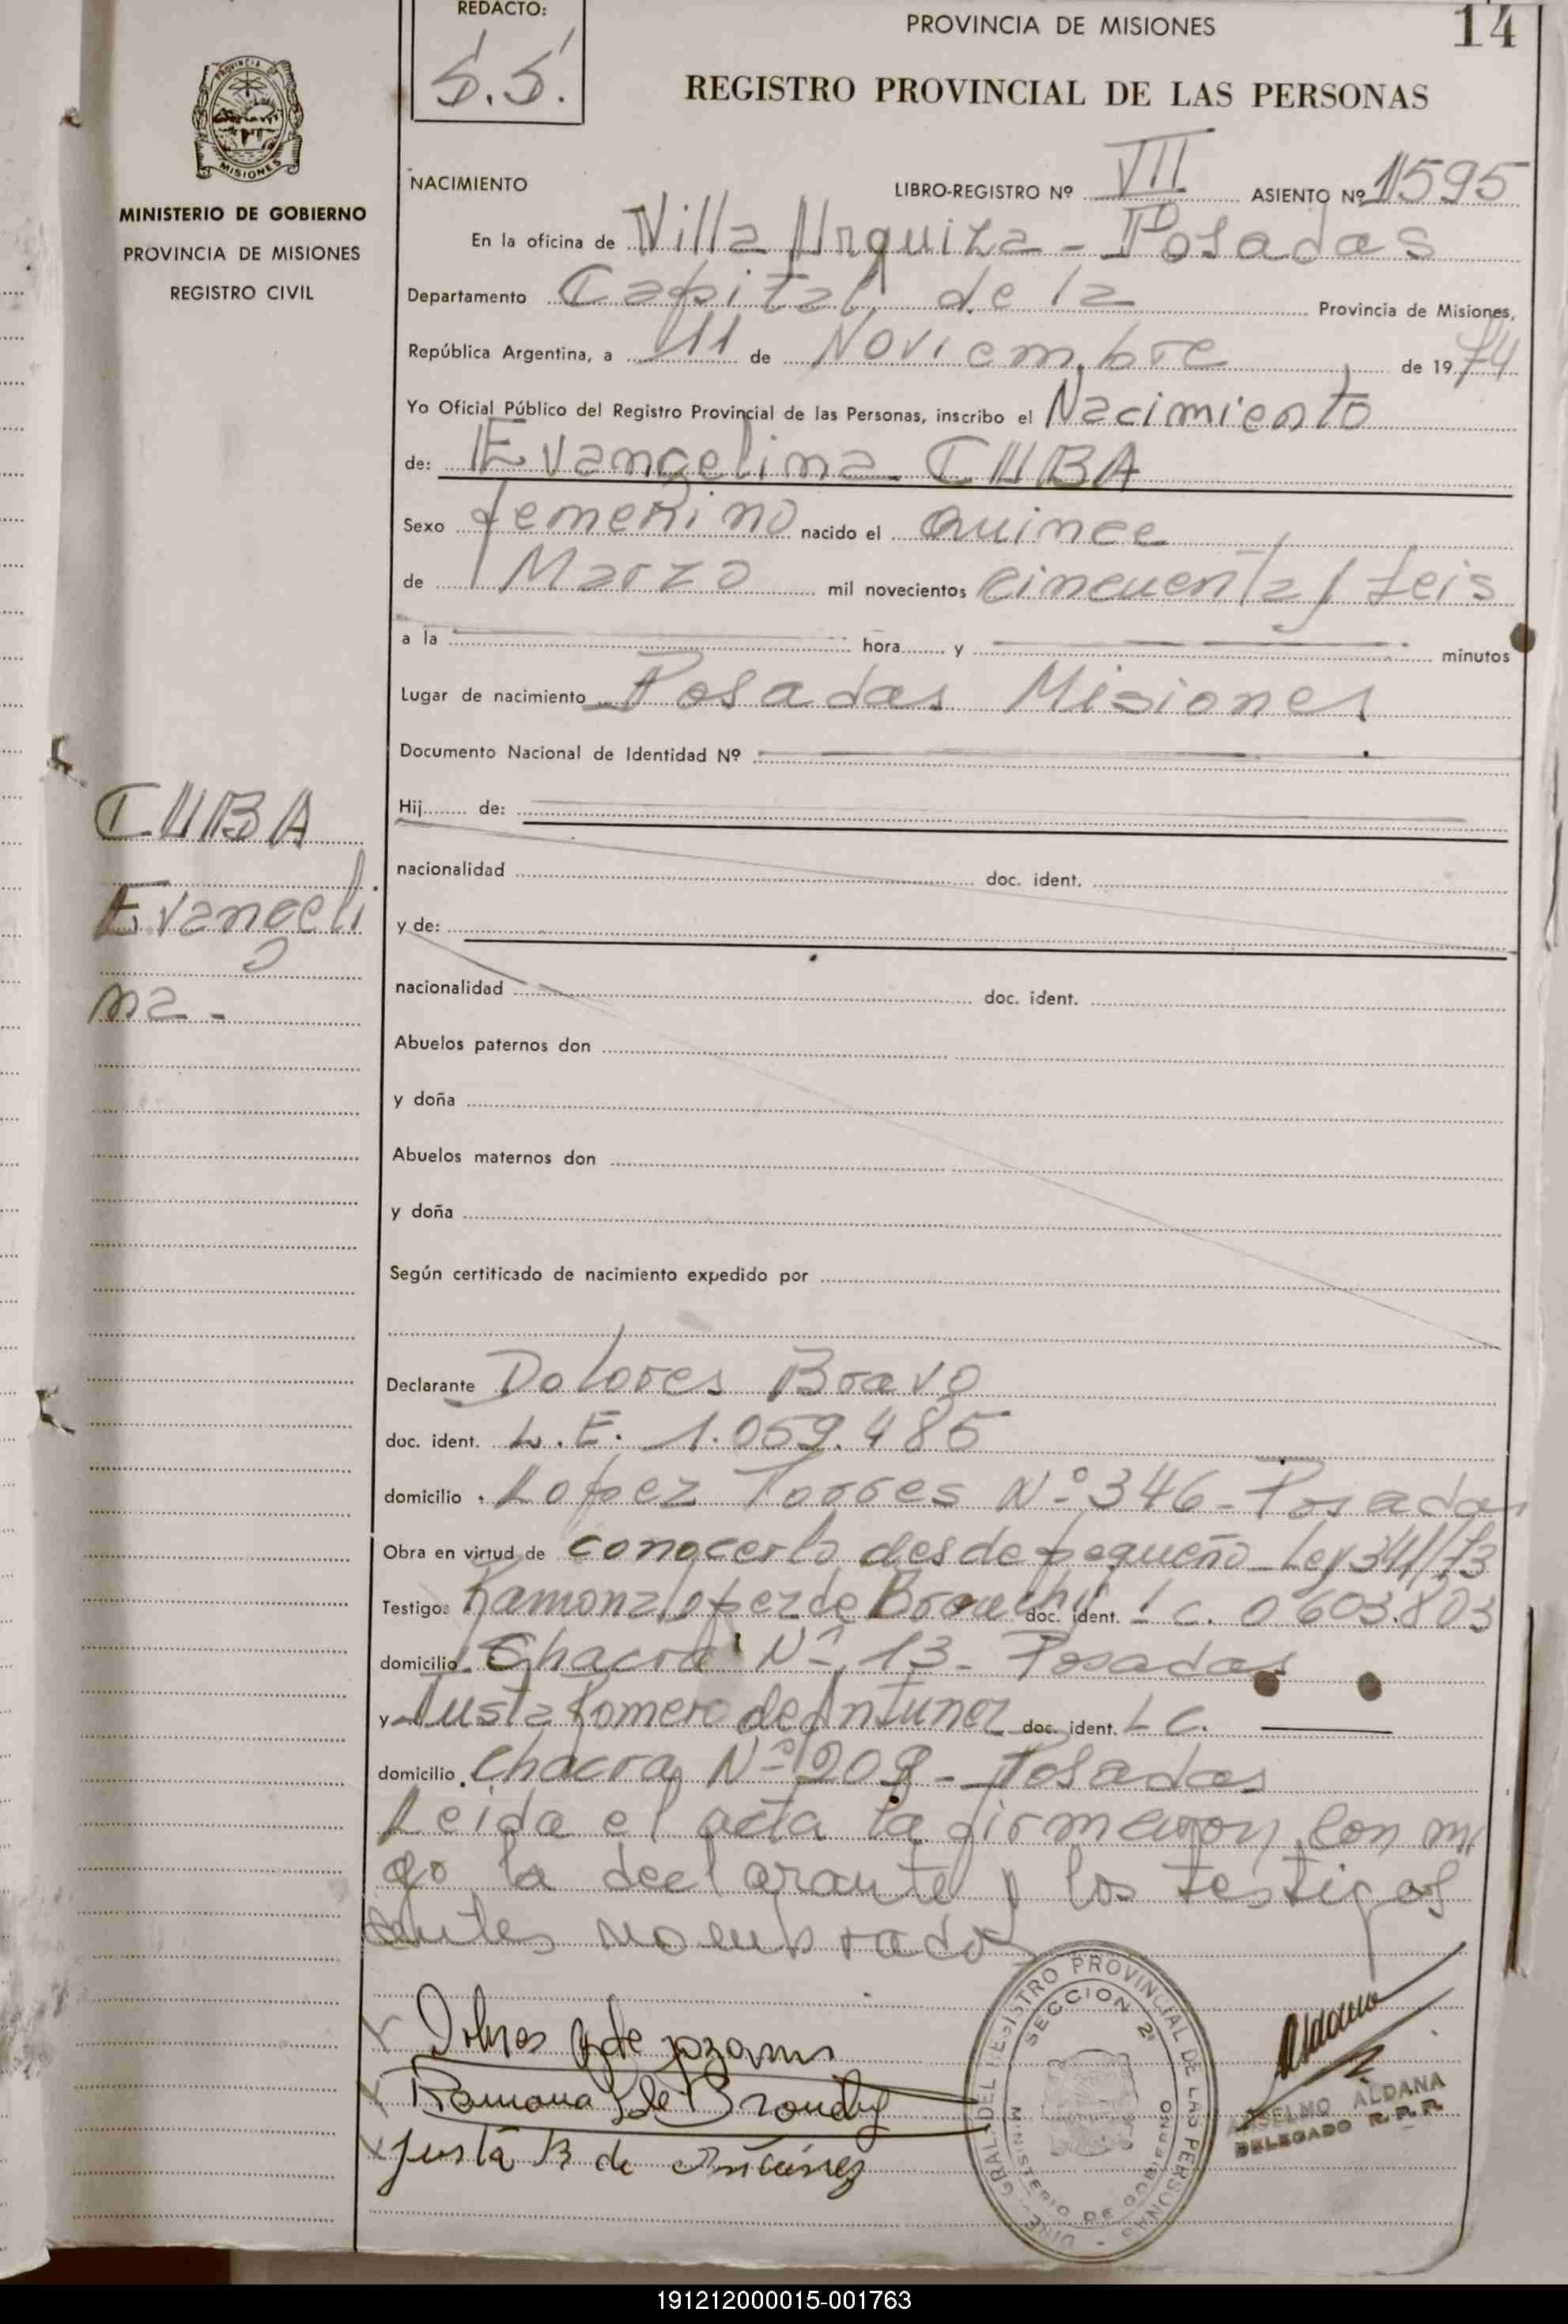 REDACTO:
S.S.
PROVINCIA DE MISIONES
14
REGISTRO PROVINCIAL DE LAS PERSONAS
MISIONES
MINISTERIO DE GOBIERNO
PROVINCIA DE MISIONES
REGISTRO CIVIL
NACIMIENTO LIBRO-REGISTRO Nº VII ASIENTO Nº 1595
En la oficina de Villa Urquiza - Posadas
Departamento Capital de la Provincia de Misiones,
República Argentina, a 11 de Noviembre de 1974
Yo Oficial Público del Registro Provincial de las Personas, inscribo el Nacimiento
de: Evangelina CUBA
Sexo femenino nacido el Quince
de Marzo mil novecientos cincuenta y seis
a la hora y minutos
Lugar de nacimiento Posadas Misiones
Documento Nacional de Identidad Nº
CUBA
Evangeli
na -
Hij de:
nacionalidad doc. ident.
y de:
nacionalidad doc. ident.
Abuelos paternos don
y doña
Abuelos maternos don
y doña
Según certificado de nacimiento expedido por
Declarante Dolores Bravo
doc. ident. L.E. 1.059.485
domicilio Lopez Torres Nº 346 - Posadas
Obra en virtud de conocerlo desde pequeño - Ley 341/73
Testigos Ramona Lopez de doc. ident. L C. 0603.803
domicilio Chacra Nº 13 - Posadas
y Justa Romero de Antunez doc. ident. L C.
domicilio Chacra Nº 209 - Posadas
Leida el acta la firmaron con mi
go la declarante y los testigos
antes nombrados
Dolores de
Ramona L de
Justa R de Antunez
DIRE. GRAL. DEL REGISTRO PROVINCIAL DE LAS PERSONAS
SECCION 2ª
MINISTERIO DE GOBIERNO
Aldana
ANSELMO ALDANA
DELEGADO R.P.P.
191212000015-001763